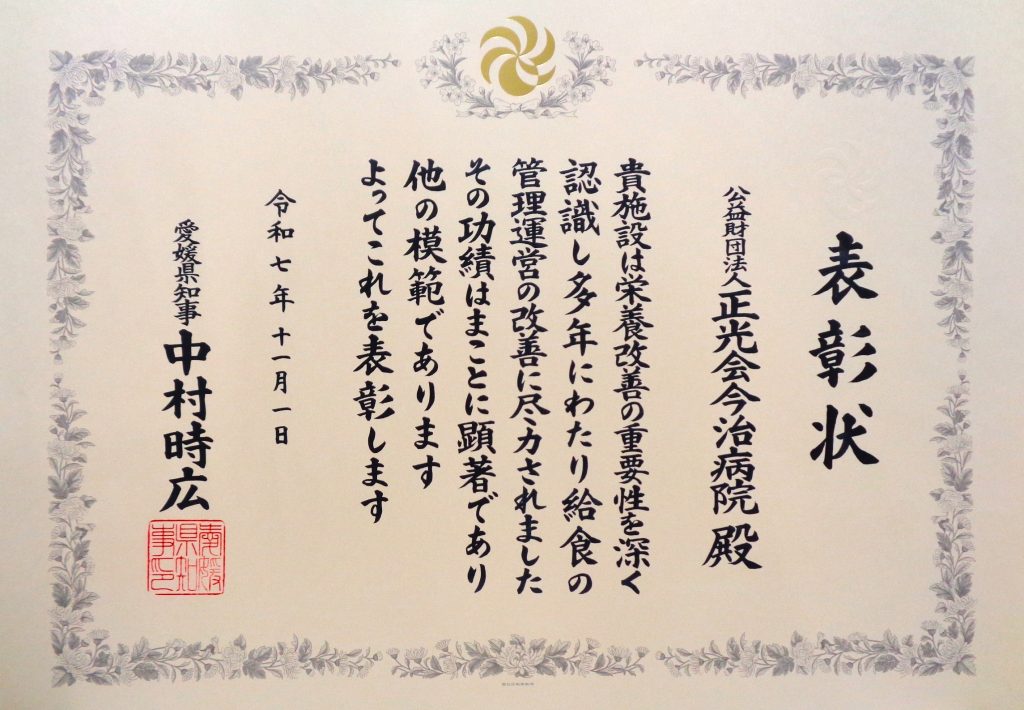 表彰状
公益財団法人正光会今治病院 殿
貴施設は栄養改善の重要性を深く
認識し多年にわたり給食の
管理運営の改善に尽力されました
その功績はまことに顕著であり
他の模範であります
よってこれを表彰します
令和七年十一月一日
愛媛県知事 中村時広
愛媛
県知
事印